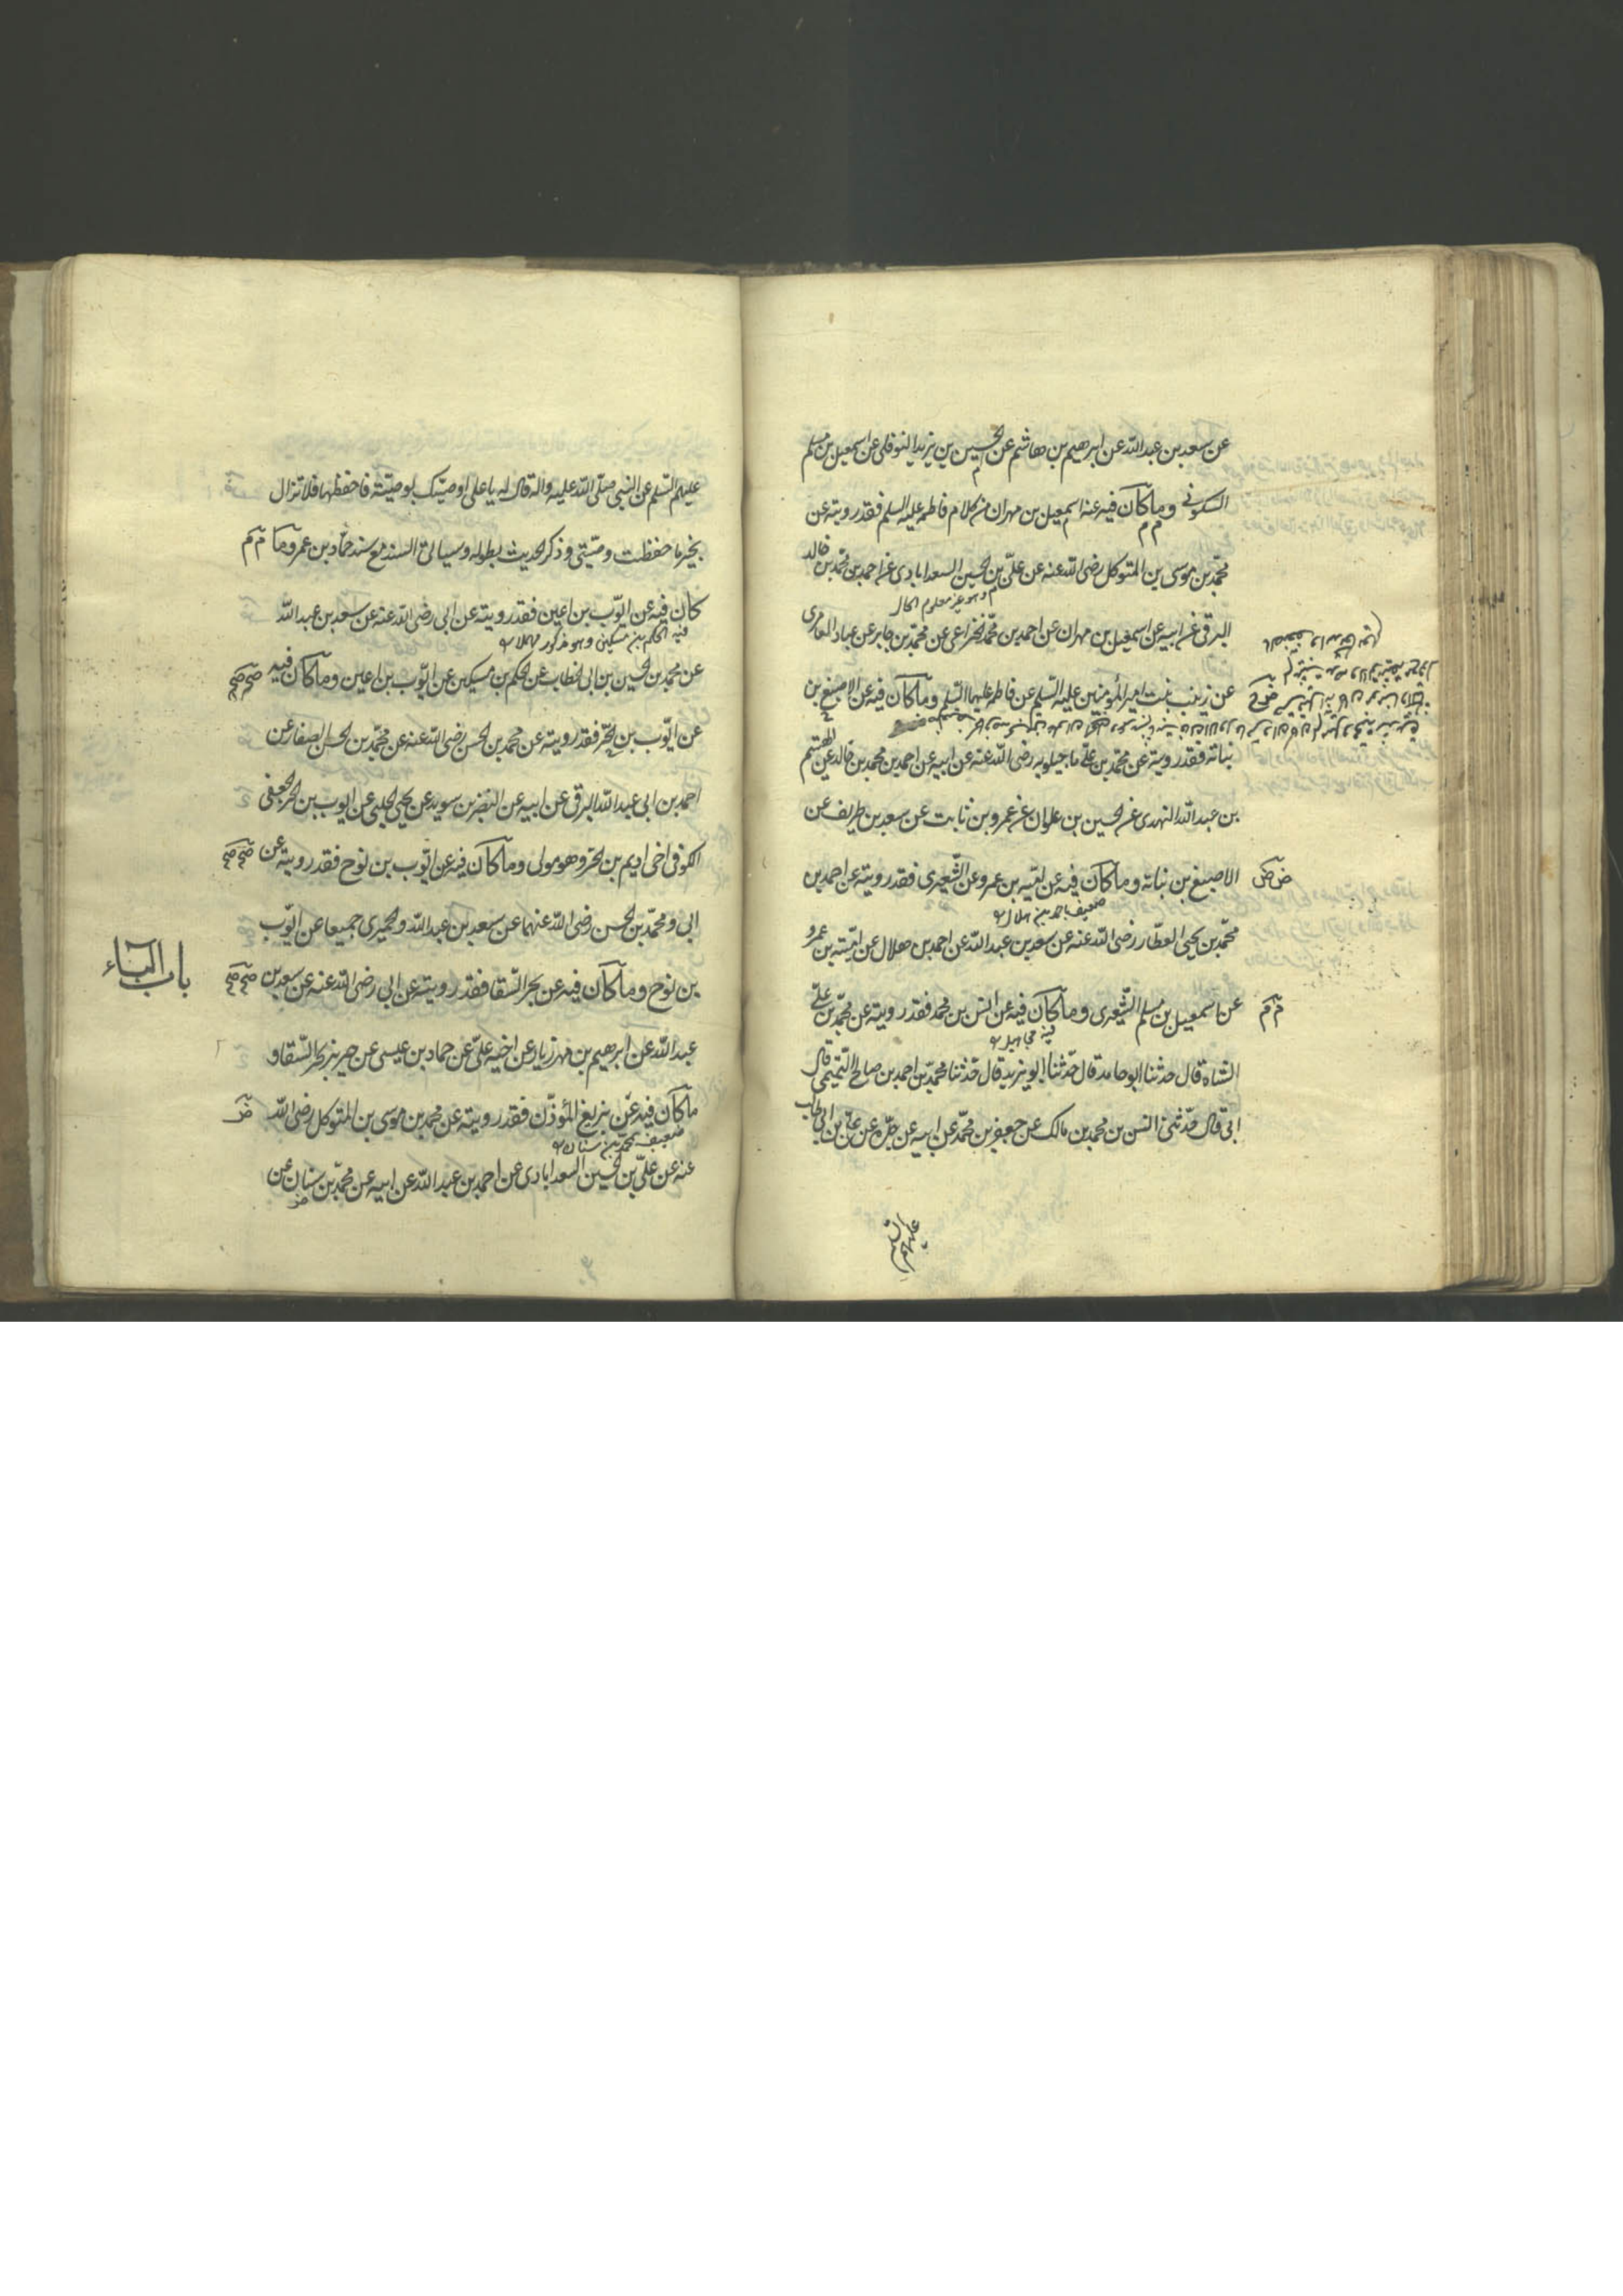 عن سعد بن عبد الله عن ابرهيم بن هاشم عن الحسين بن يزيد النوفلى عن اسمعيل بن مسلم
السكونى وما كان فيه عن اسمعيل بن مهران من كلام فاطمه عليها السلم فقد رويته عن
محمد بن موسى بن المتوكل رضى الله عنه عن على بن الحسين السعدابادى عن احمد بن محمد بن خالد
وهو غير معلوم الحال
البرقى عن ابيه عن اسمعيل بن مهران عن احمد بن محمد الخزاعى عن محمد بن جابر عن عباد العامرى
عن زينب بنت امير المؤمنين عليه السلم عن فاطمه عليها السلم وما كان فيه عن الاصبغ بن
نباته فقد رويته عن محمد بن على ماجيلويه رضى الله عنه عن ابيه عن احمد بن محمد بن خالد عن الهيثم
بن عبد الله النهدى عن الحسين بن علوان عن عمرو بن ثابت عن سعد بن طريف عن
الاصبغ بن نباته وما كان فيه عن اميه بن عمرو عن الشعيرى فقد رويته عن احمد بن
ضعيف باحمد بن هلال
محمد بن يحيى العطار رضى الله عنه عن سعد بن عبد الله عن احمد بن هلال عن اميه بن عمرو
عن اسمعيل بن مسلم الشعيرى وما كان فيه عن انس بن محمد فقد رويته عن محمد بن على
فيه مجاهيل
الشاه قال حدثنا ابو حامد قال حدثنا ابو يزيد قال حدثنا محمد بن احمد بن صالح التميمى قال
ابى قال حدثنى انس بن محمد بن مالك عن جعفر بن محمد عن ابيه عن جده عن على بن ابى طالب
عليهم السلم
عليهم السلم عن النبى صلى الله عليه واله قال له يا على اوصيك بوصية فاحفظها فلا تزال
بخير ما حفظت وصيتى وذكر الحديث بطوله وسياتى السند مع سند حماد بن عمرو وما
كان فيه عن ايوب بن اعين فقد رويته عن ابى رضى الله عنه عن سعد بن عبد الله
فيه الحكم بن مسكين وهو مذكور مهملا
عن محمد بن الحسين بن ابى الخطاب عن الحكم بن مسكين عن ايوب بن اعين وما كان فيه
عن ايوب بن الحر فقد رويته عن محمد بن الحسن رضى الله عنه عن محمد بن الحسن الصفار عن
احمد بن ابى عبد الله البرقى عن ابيه عن النضر بن سويد عن يحيى الحلبى عن ايوب بن الحر الجعفى
الكوفى اخى اديم بن الحر وهو مولى وما كان فيه عن ايوب بن نوح فقد رويته عن
ابى ومحمد بن الحسن رضى الله عنهما عن سعد بن عبد الله والحميرى جميعا عن ايوب
باب الباء
بن نوح وما كان فيه عن بحر السقا فقد رويته عن ابى رضى الله عنه عن سعد بن
عبد الله عن ابرهيم بن مهزيار عن اخيه على عن حماد بن عيسى عن حريز عن بحر السقا و
ما كان فيه عن بزيع المؤذن فقد رويته عن محمد بن موسى بن المتوكل رضى الله
ضعيف بمحمد بن سنان
عنه عن على بن الحسين السعدابادى عن احمد بن عبد الله عن ابيه عن محمد بن سنان عن